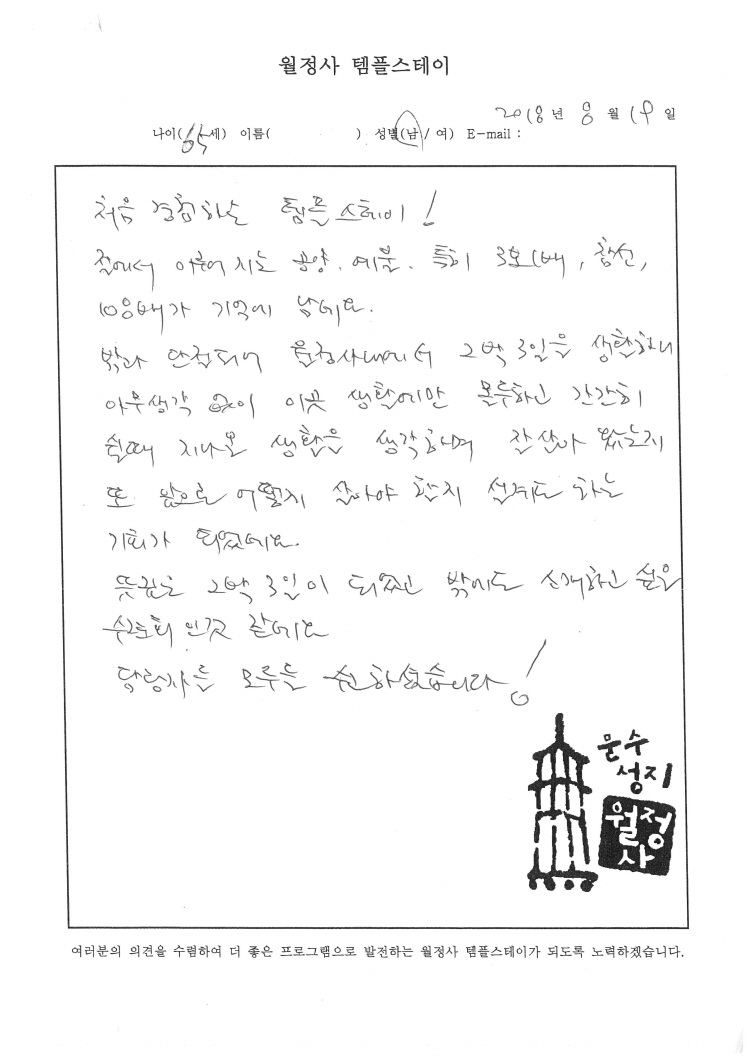 월정사 템플스테이
2018년 8월 19일
나이(65세) 이름( ) 성별(남 / 여) E-mail :
처음 경험하는 템플스테이!
절에서 이루어지는 공양, 예불, 특히 3보1배, 참선,
108배가 기억에 남네요.
밖과 단절되어 월정사내에서 2박 3일을 생활하니
아무생각 없이 이곳 생활에만 몰두하고 간간히
쉴때 지나온 생활을 생각하며 잘 살아 왔는지
또 앞으로 어떻게 살아야 할지 설계도 하는
기회가 되었네요.
뜻깊은 2박 3일이 되었고 밖에도 소개하고 싶은
것 같네요
담당자들 모두들 수고하셨습니다!
문수
성지
월정
사
여러분의 의견을 수렴하여 더 좋은 프로그램으로 발전하는 월정사 템플스테이가 되도록 노력하겠습니다.